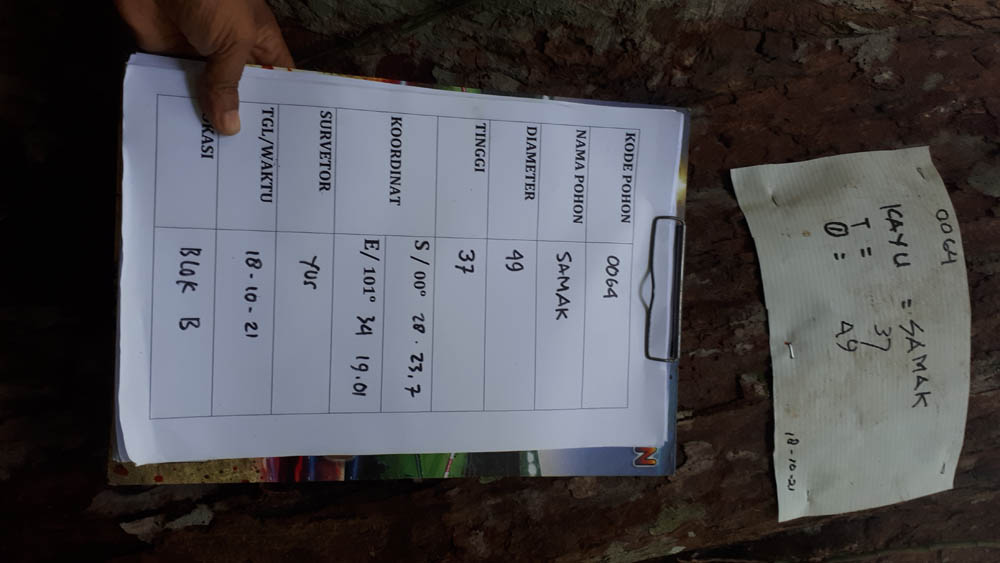 0064
KAYU = SAMAK
T = 37
Ⓘ = 49
18-10-21
N
KODE POHON 0064
NAMA POHON SAMAK
DIAMETER 49
TINGGI 37
KOORDINAT
S / 00° 28 . 23,7
E/ 101° 34 19.01
SURVETOR YUS
TGL/WAKTU 18-10-21
OKASI BLOK B